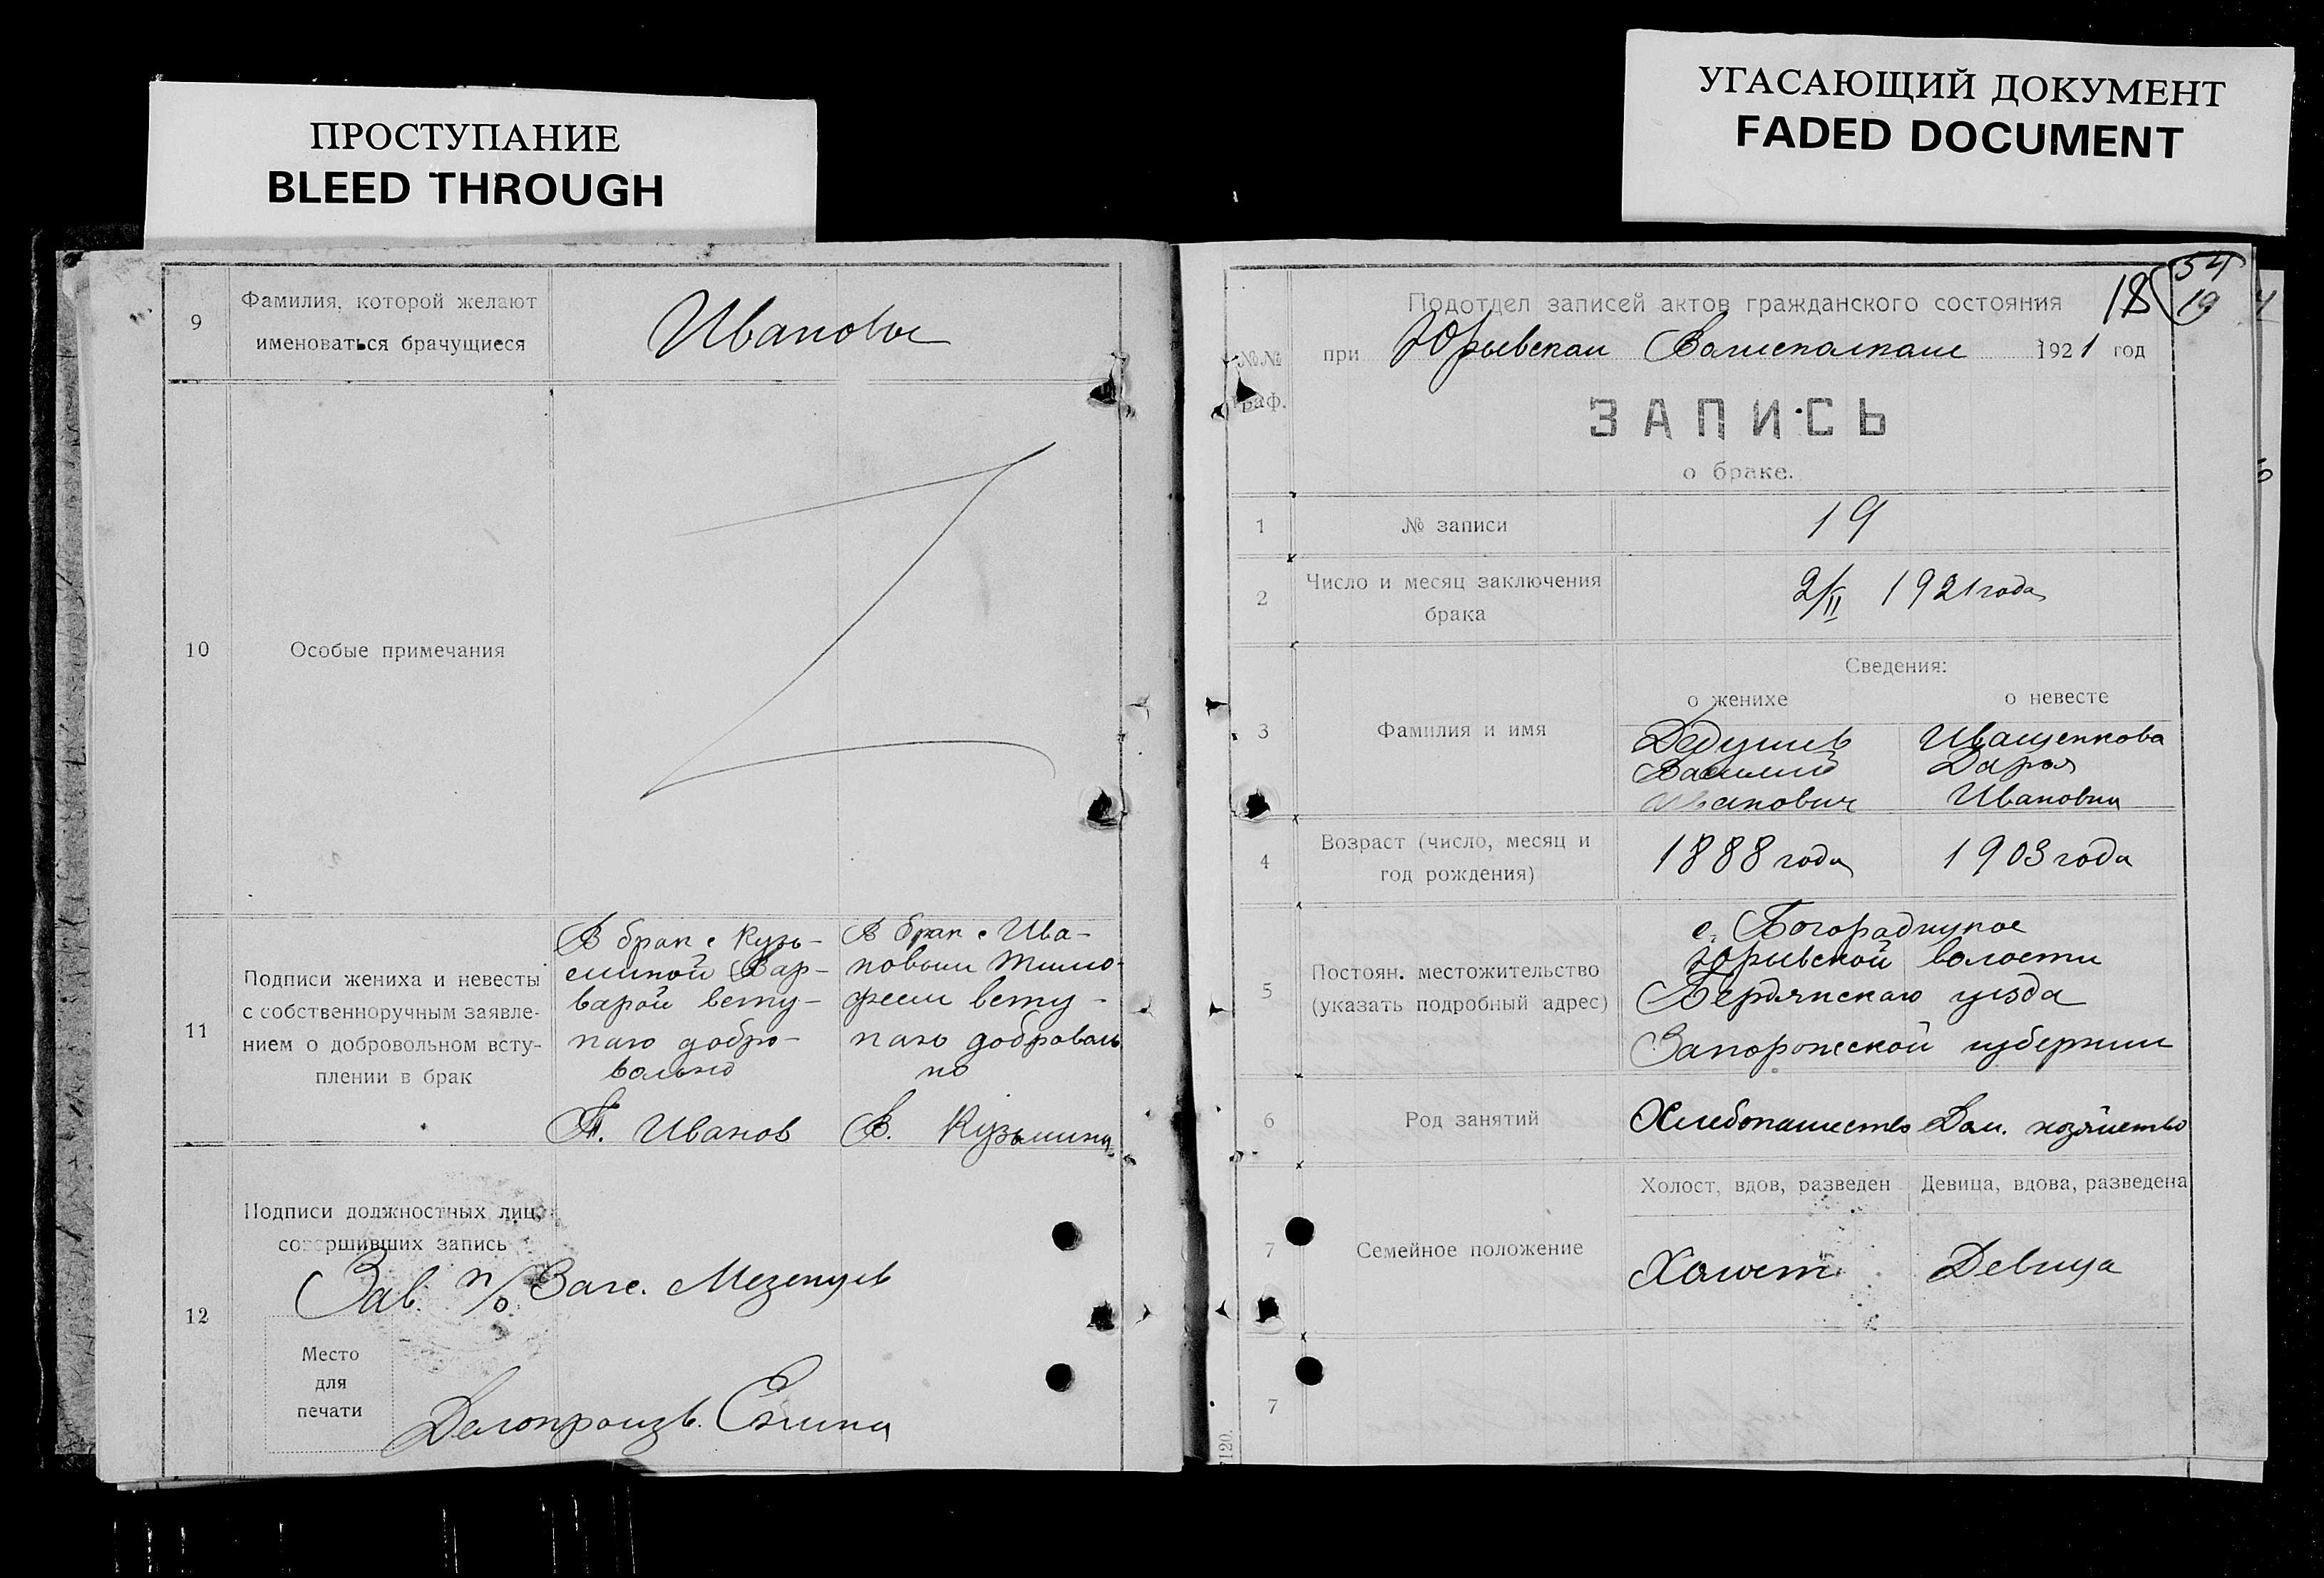 ПРОСТУПАНИЕ
BLEED THROUGH
УГАСАЮЩИЙ ДОКУМЕНТ
FADED DOCUMENT
9
Фамилия, которой желают
именоваться брачущиеся
Ивановы
10
Особые примечания
11
Подписи жениха и невесты
с собственноручным заявле-
нием о добровольном всту-
плении в брак
В брак с Кузь-
миной Вар-
варой всту-
паю добро-
вольно
Т. Иванов
В брак с Ива-
новым Тимо-
феем всту-
паю доброволь
но
В. Кузьмина
12
Подписи должностных лиц,
совершивших запись
Зав. п/о Загс. Мезенцев
Место
для
печати
Делопроизв.
18
54
19
Подотдел записей актов гражданского состояния
№№
граф.
при Юрьевском Волисполкоме 1921 год
ЗАПИСЬ
о браке.
1
№ записи
19
2
Число и месяц заключения
брака
2/II 1921 года
3
Фамилия и имя
Сведения:
о женихе
о невесте
Дедушев
Василий
Иванович
Иващенкова
Дарья
Ивановна
4
Возраст (число, месяц и
год рождения)
1888 года
1903 года
5
Постоян. местожительство
(указать подробный адрес)
с. Богородицкое
Юрьевской волости
Бердянскаго уезда
Запорожской губернии
6
Род занятий
Хлебопашество
Дом. хозяйство
7
Семейное положение
Холост, вдов, разведен
Девица, вдова, разведена
Холост
Девица
7
7120.